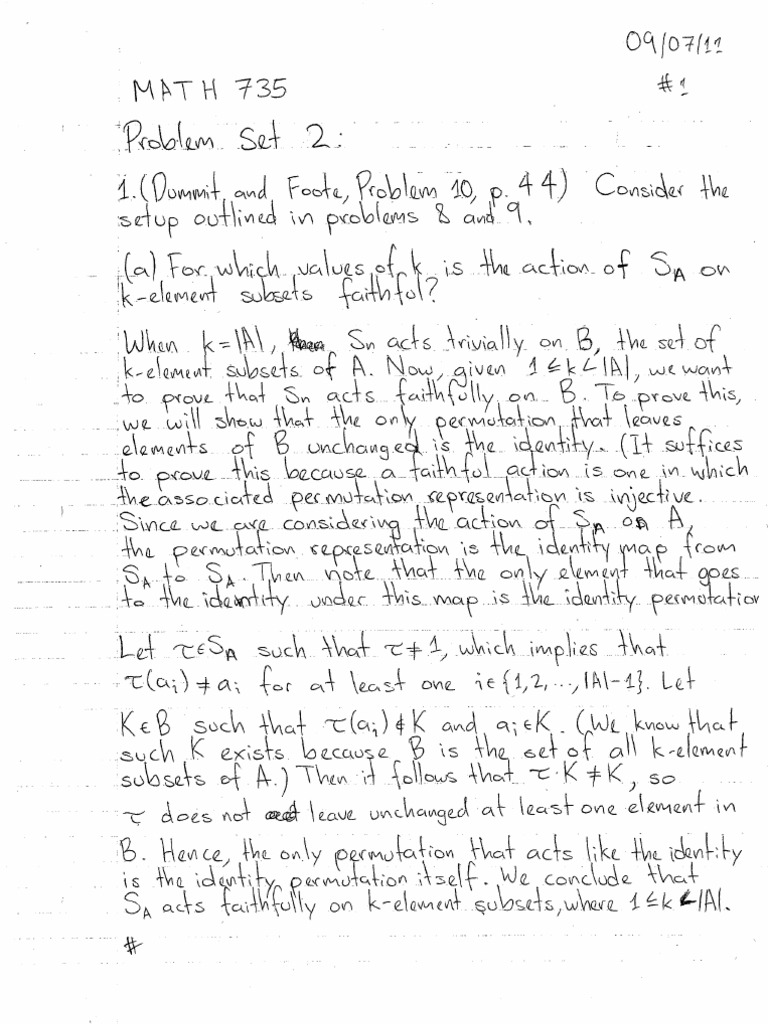 09/07/11
MATH 735
#1
Problem Set 2:
1. (Dummit and Foote, Problem 10, p. 44) Consider the
setup outlined in problems 8 and 9.
(a) For which values of k is the action of S_A on
k-element subsets faithful?
When k=|A|, Sn acts trivially on B, the set of
k-element subsets of A. Now, given 1≤k<|A|, we want
to prove that Sn acts faithfully on B. To prove this,
we will show that the only permutation that leaves
elements of B unchanged is the identity. (It suffices
to prove this because a faithful action is one in which
the associated permutation representation is injective.
Since we are considering the action of S_A on A,
the permutation representation is the identity map from
S_A to S_A. Then note that the only element that goes
to the identity under this map is the identity permutation
Let τ∈S_A such that τ≠1, which implies that
τ(a_i)≠a_i for at least one i∈{1,2,...,|A|-1}. Let
K∈B such that τ(a_i)∉K and a_i∈K. (We know that
such K exists because B is the set of all k-element
subsets of A.) Then it follows that τ·K≠K, so
τ does not leave unchanged at least one element in
B. Hence, the only permutation that acts like the identity
is the identity permutation itself. We conclude that
S_A acts faithfully on k-element subsets, where 1≤k<|A|.
#